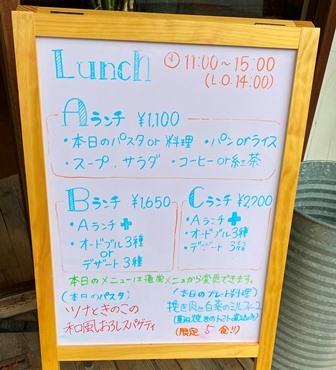 Lunch
11:00〜15:00
(L.O.14:00)
Aランチ ¥1,100
・本日のパスタor料理 ・パンorライス
・スープ、サラダ ・コーヒーor紅茶
Bランチ ¥1,650
・Aランチ+
・オードブル3種
or
デザート3種
Cランチ ¥2,200
・Aランチ+
・オードブル3種
・デザート3種
本日のメニューは通常メニューから変更できます。
(本日のパスタ)
ツナときのこの
和風おろしスパゲティ
(本日のプレート料理)
挽き肉と白菜のミルフィーユ
トマト煮込み
(限定 5食!!)